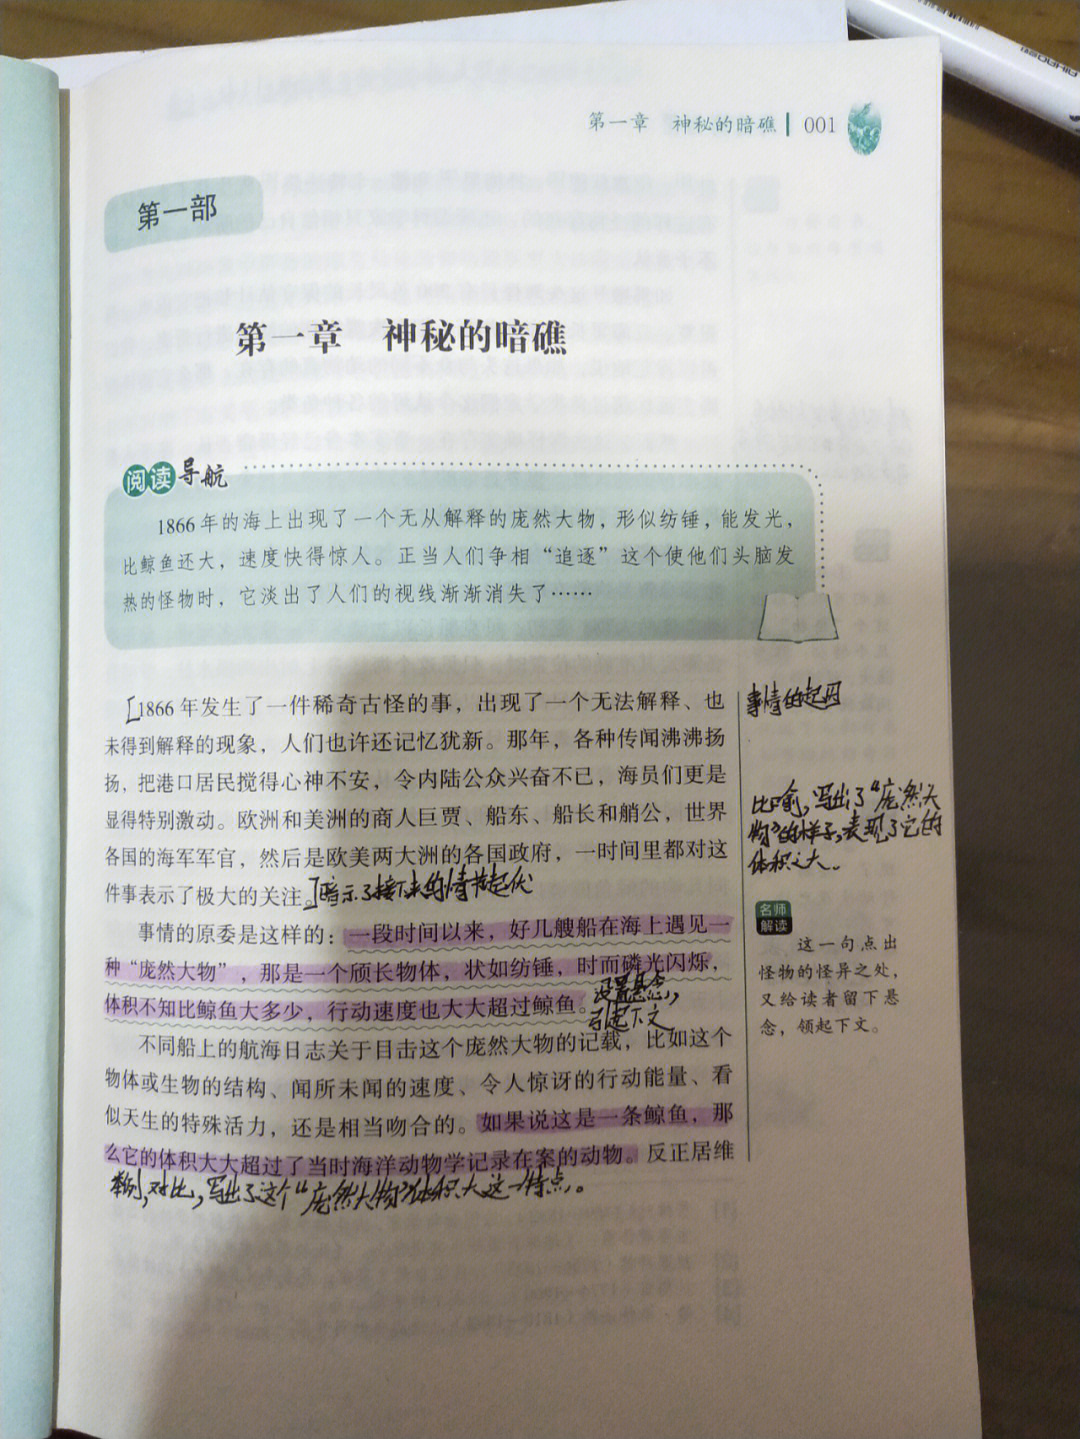 第一章 神秘的暗礁 001
第一部
第一章 神秘的暗礁
阅读导航
1866年的海上出现了一个无从解释的庞然大物，形似纺锤，能发光，
比鲸鱼还大，速度快得惊人。正当人们争相“追逐”这个使他们头脑发
热的怪物时，它淡出了人们的视线渐渐消失了……
1866年发生了一件稀奇古怪的事，出现了一个无法解释、也
未得到解释的现象，人们也许还记忆犹新。那年，各种传闻沸沸扬
扬，把港口居民搅得心神不安，令内陆公众兴奋不已，海员们更是
显得特别激动。欧洲和美洲的商人巨贾、船东、船长和艄公，世界
各国的海军军官，然后是欧美两大洲的各国政府，一时间里都对这
件事表示了极大的关注。暗示了接下来的情节起伏
事情的原委是这样的：一段时间以来，好几艘船在海上遇见一
种“庞然大物”，那是一个颀长物体，状如纺锤，时而磷光闪烁，
体积不知比鲸鱼大多少，行动速度也大大超过鲸鱼。
设置悬念，
引起下文
不同船上的航海日志关于目击这个庞然大物的记载，比如这个
物体或生物的结构、闻所未闻的速度、令人惊讶的行动能量、看
似天生的特殊活力，还是相当吻合的。如果说这是一条鲸鱼，那
么它的体积大大超过了当时海洋动物学记录在案的动物。反正居维
对比，写出了这个“庞然大物”体积大这一特点。
事情的起因
比喻，写出了“庞然大
物”的样子，表现了它的
体积之大。
名师
解读
这一句点出
怪物的怪异之处，
又给读者留下悬
念，领起下文。